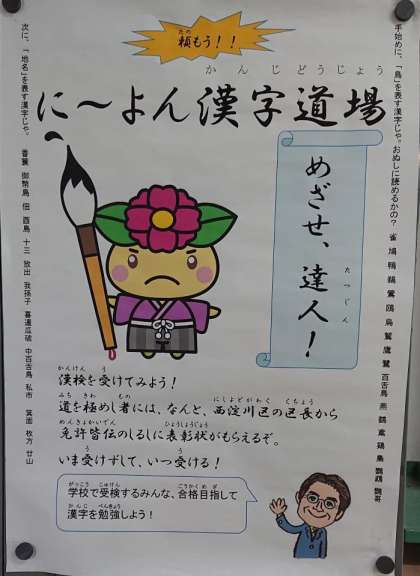 頼もう！！
たの
かんじどうじょう
に～よん漢字道場
手始めに、「鳥」を表す漢字じゃ。おぬしに読めるかの？ 雀 鳩 鴨 烏 鷹 百舌鳥 燕 鶴 鳶 鶏 梟 鸚鵡 鸚哥
めざせ、達人！
たつじん
次に、「地名」を表す漢字じゃ。 香簑 御幣島 佃 酉島 十三 放出 我孫子 喜連瓜破 中百舌鳥 私市 箕面 枚方 廿山
かんけん う
漢検を受けてみよう！
みち きわ もの にしよどがわく くちょう
道を極めし者には、なんと、西淀川区の区長から
めんきょかいでん ひょうしょうじょう
免許皆伝のしるしに表彰状がもらえるぞ。
いま受けずして、いつ受ける！
がっこう じゅけん ごうかくめざ
学校で受検するみんな、合格目指して
かんじ べんきょう
漢字を勉強しよう！